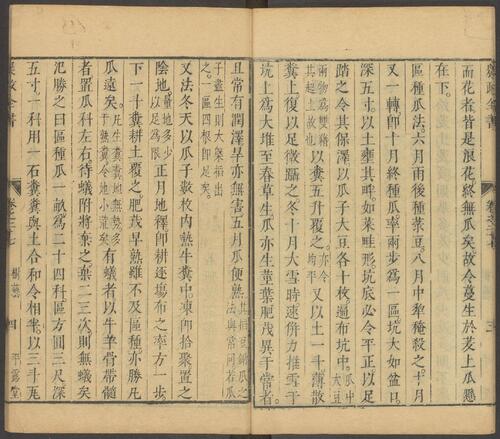 而花者皆是浪花終無瓜矣故令蔓生於茇上瓜懸
在下
區種瓜法六月雨後種菉豆八月中犁䅖殺之十月
又一轉卽十月終種瓜率兩步為一區坑大如盆口
深五寸以土壅其畔如菜畦形坑底必令平正以足
踏之令其保澤以瓜子大豆各十枚遍布坑中瓜中大豆
兩物為雙藉其起土故也以糞五升覆之亦令均平又以土一斗薄散
糞上復以足微躡之冬十月大雪時速併力推雪于
坑上為大堆至春草生瓜亦生莖葉肥茂異于常者
且常有潤澤旱亦無害五月瓜便熟其掐豆鋤瓜之法與常同若瓜
子盡生則大槩掐出之一區四根即足矣
又法冬天以瓜子數枚內熱牛糞中凍即拾聚置之
陰地量地多少以足為限正月地釋即耕逐塲布之率方一步
下一斗糞耕土覆之肥茂早熟雖不及區種亦勝凡
瓜遠矣凡生糞糞地無勢多于熟糞令地小荒矣有蟻者以牛羊骨帶髓
者置瓜科左右待蟻附將棄之棄二三次則無蟻矣
氾勝之曰區種瓜一畝為二十四科區方圓三尺深
五寸一科用一石糞糞與土合和令相半以三斗瓦
卷之二十七
樹藝
四
平露堂